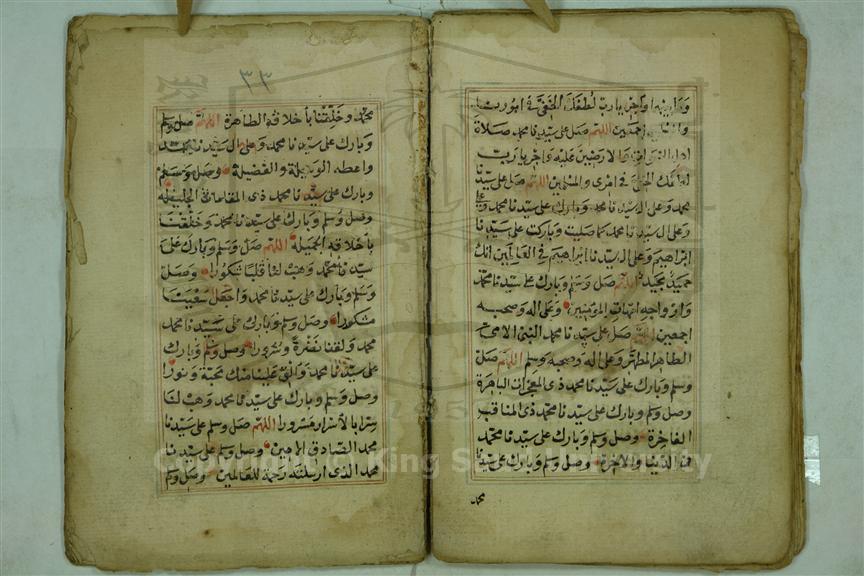 اجمعين اللهم صل على سيدنا محمد صلاة
محمد وعلى ال سيدنا محمد وبارك على سيدنا محمد
وعلى ال سيدنا محمد كما صليت وباركت على سيدنا
ابراهيم وعلى ال سيدنا ابراهيم في العالمين انك
حميد مجيد اللهم صل وسلم وبارك على سيدنا محمد
وازواجه امهات المؤمنين وعلى اله وصحبه
اجمعين اللهم صل على سيدنا محمد النبي الامي
الطاهر المطهر وعلى اله وصحبه وسلم اللهم صل
وسلم وبارك على سيدنا محمد ذي المعجزات الباهرة
وصل وسلم وبارك على سيدنا محمد ذي المناقب
الفاخرة وصل وسلم وبارك على سيدنا محمد
في الدنيا والاخرة وصل وسلم وبارك على سيدنا
محمد
٣٣
محمد وخلقنا بأخلاقه الطاهرة اللهم صل وسلم
وبارك على سيدنا محمد وعلى ال سيدنا محمد
واعطه الوسيلة والفضيلة وصل وسلم
وبارك على سيدنا محمد ذي المقامات الجليلة
وصل وسلم وبارك على سيدنا محمد وخلقنا
بأخلاقه الجميلة اللهم صل وسلم وبارك على
سيدنا محمد وهب لنا قلبا شكورا وصل
وسلم وبارك على سيدنا محمد واجعل سعينا
مشكورا وصل وسلم وبارك على سيدنا محمد
محمد ولقنا نضرة وسرورا وصل وسلم وبارك
على سيدنا محمد والق علينا منك محبة ونورا
وصل وسلم وبارك على سيدنا محمد وهب لنا
سرا بالأسرار مسرورا اللهم صل وسلم على سيدنا
محمد الصادق الامين وصل وسلم على سيدنا
محمد الذي ارسلته رحمة للعالمين وصل وسلم
Copyright © King Saud University